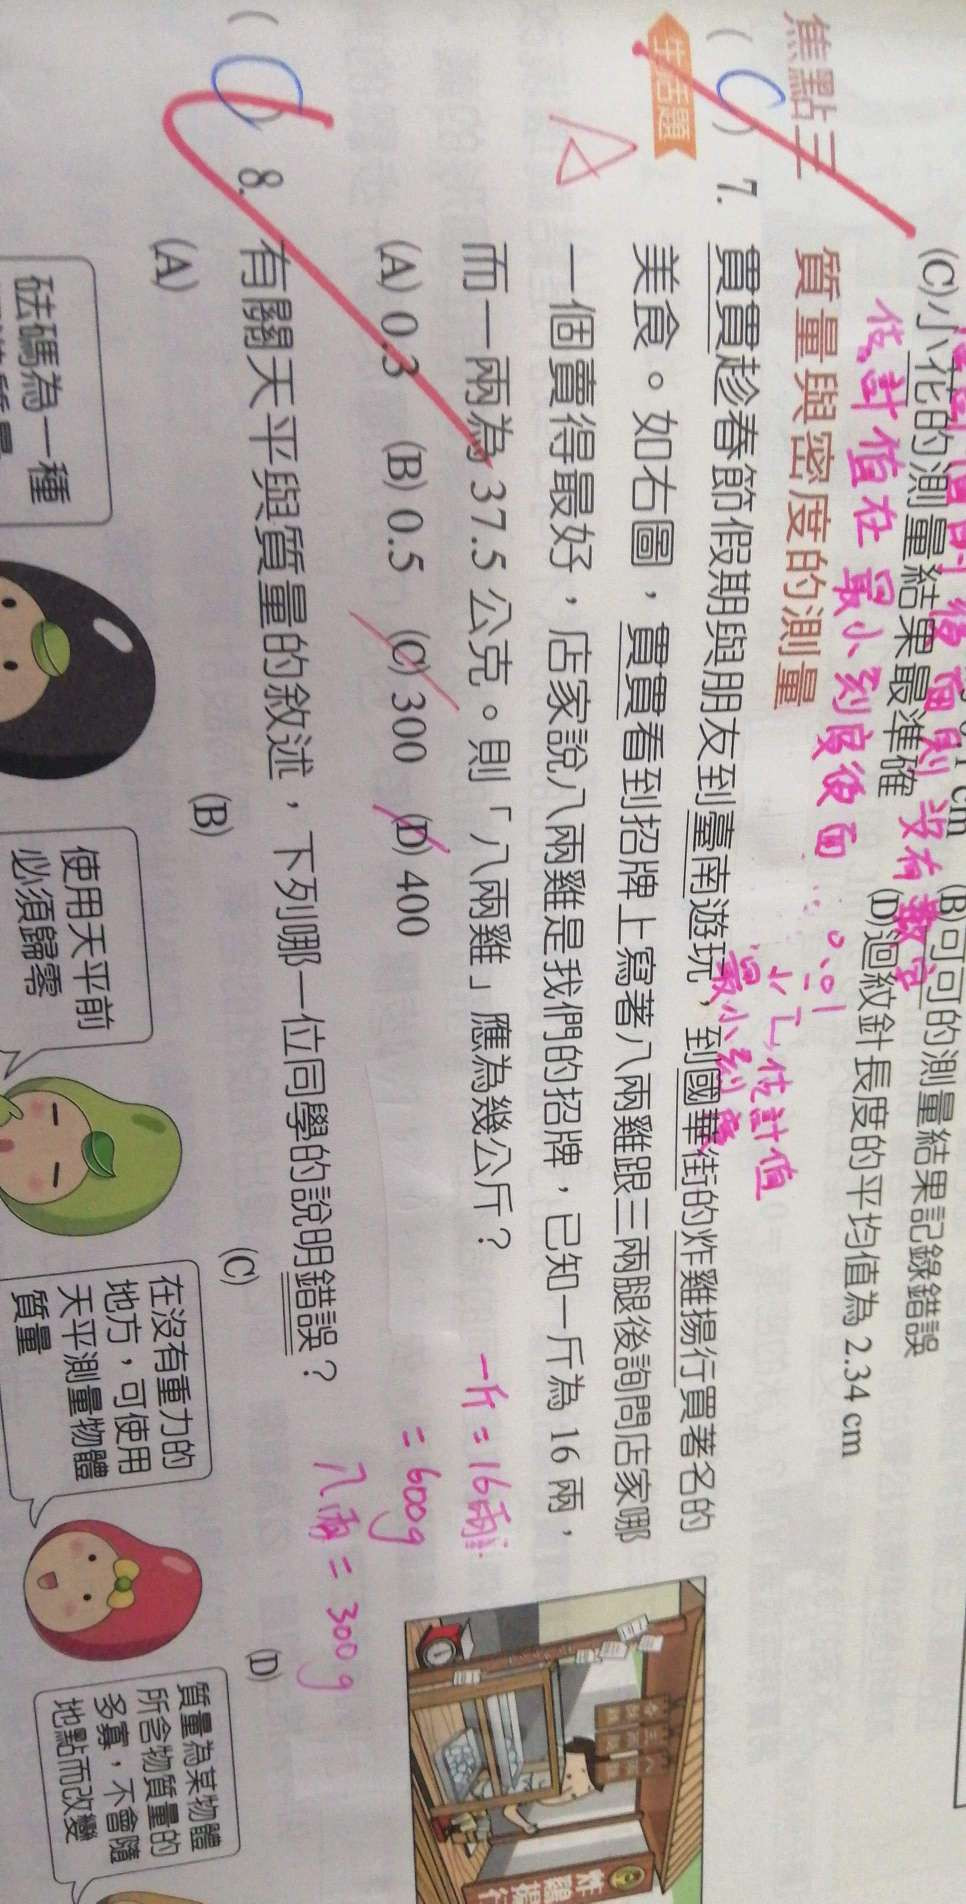 (C)小花的測量結果最準確
(B)可可的測量結果記錄錯誤
(D)迴紋針長度的平均值為 2.34 cm
估計值在最小刻度後面
0.01
估計值
最小刻度
焦點三 質量與密度的測量
生活題
(C) 7. 貫貫趁春節假期與朋友到臺南遊玩，到國華街的炸雞揚行買著名的
美食。如右圖，貫貫看到招牌上寫著八兩雞跟三兩腿後詢問店家哪
一個賣得最好，店家說八兩雞是我們的招牌，已知一斤為 16 兩，
而一兩為 37.5 公克。則「八兩雞」應為幾公斤？
(A) 0.3 (B) 0.5 (C) 300 (D) 400
A
一斤=16兩
=600g
八兩=300g
炸雞揚行
(C) 8. 有關天平與質量的敘述，下列哪一位同學的說明錯誤？
(A)
砝碼為一種
(B)
使用天平前
必須歸零
(C)
在沒有重力的
地方，可使用
天平測量物體
質量
(D)
質量為某物體
所含物質量的
多寡，不會隨
地點而改變